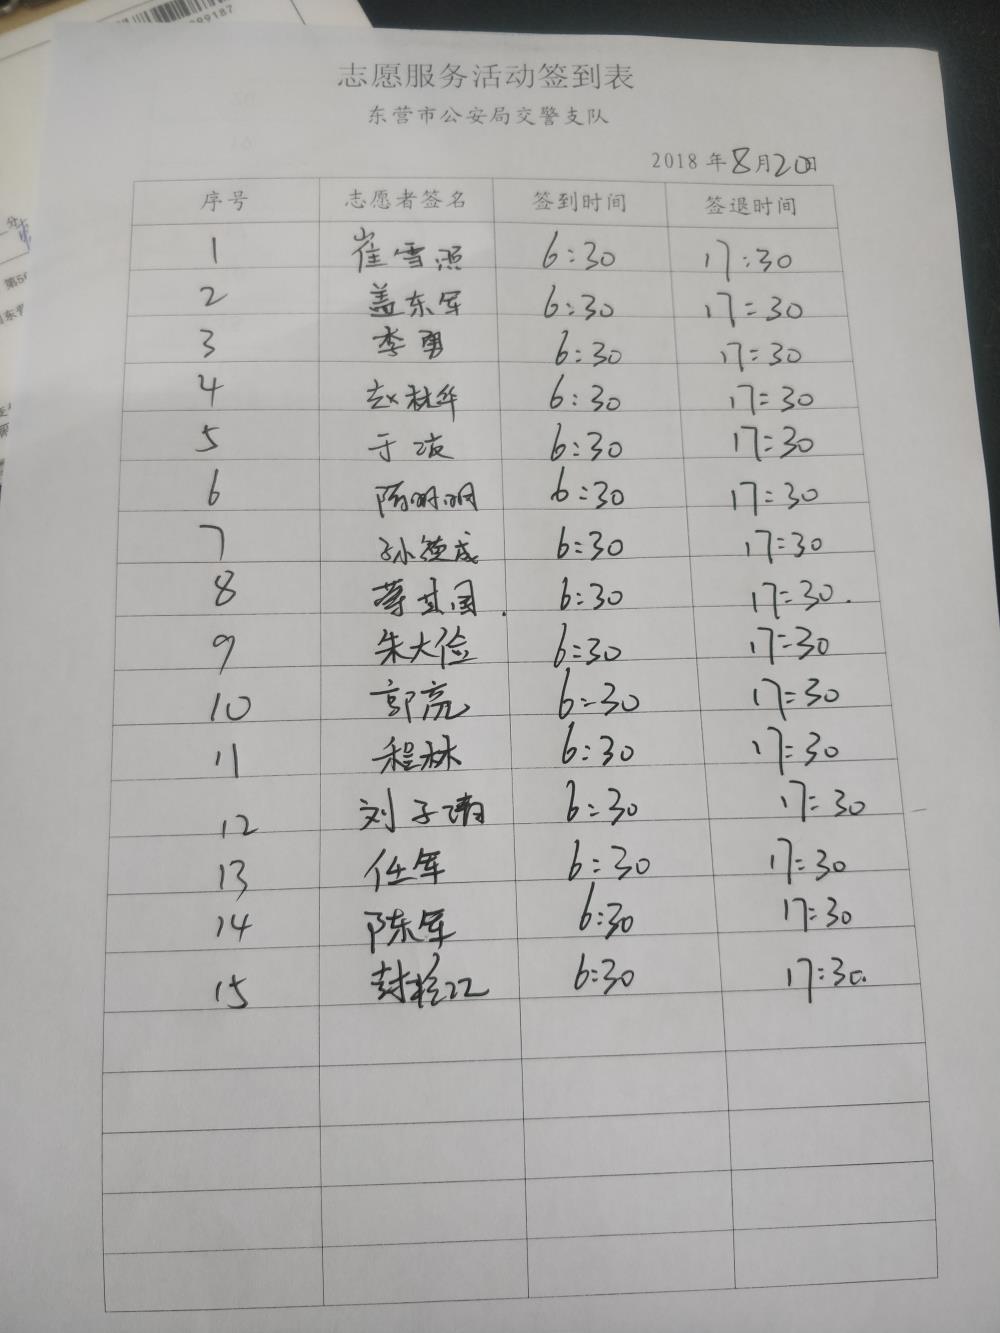 99187
志愿服务活动签到表
东营市公安局交警支队
2018 年 8月20日
序号 志愿者签名 签到时间 签退时间
1 崔雪照 6:30 17:30
2 盖东军 6:30 17:30
3 李勇 6:30 17:30
4 赵林华 6:30 17:30
5 于波 6:30 17:30
6 陈明明 6:30 17:30
7 孙德成 6:30 17:30
8 国 6:30 17:30.
9 朱大俭 6:30 17:30
10 郭亮 6:30 17:30
11 程林 6:30 17:30
12 刘子靖 6:30 17:30
13 任军 6:30 17:30
14 陈军 6:30 17:30
15 封 江 6:30 17:30.